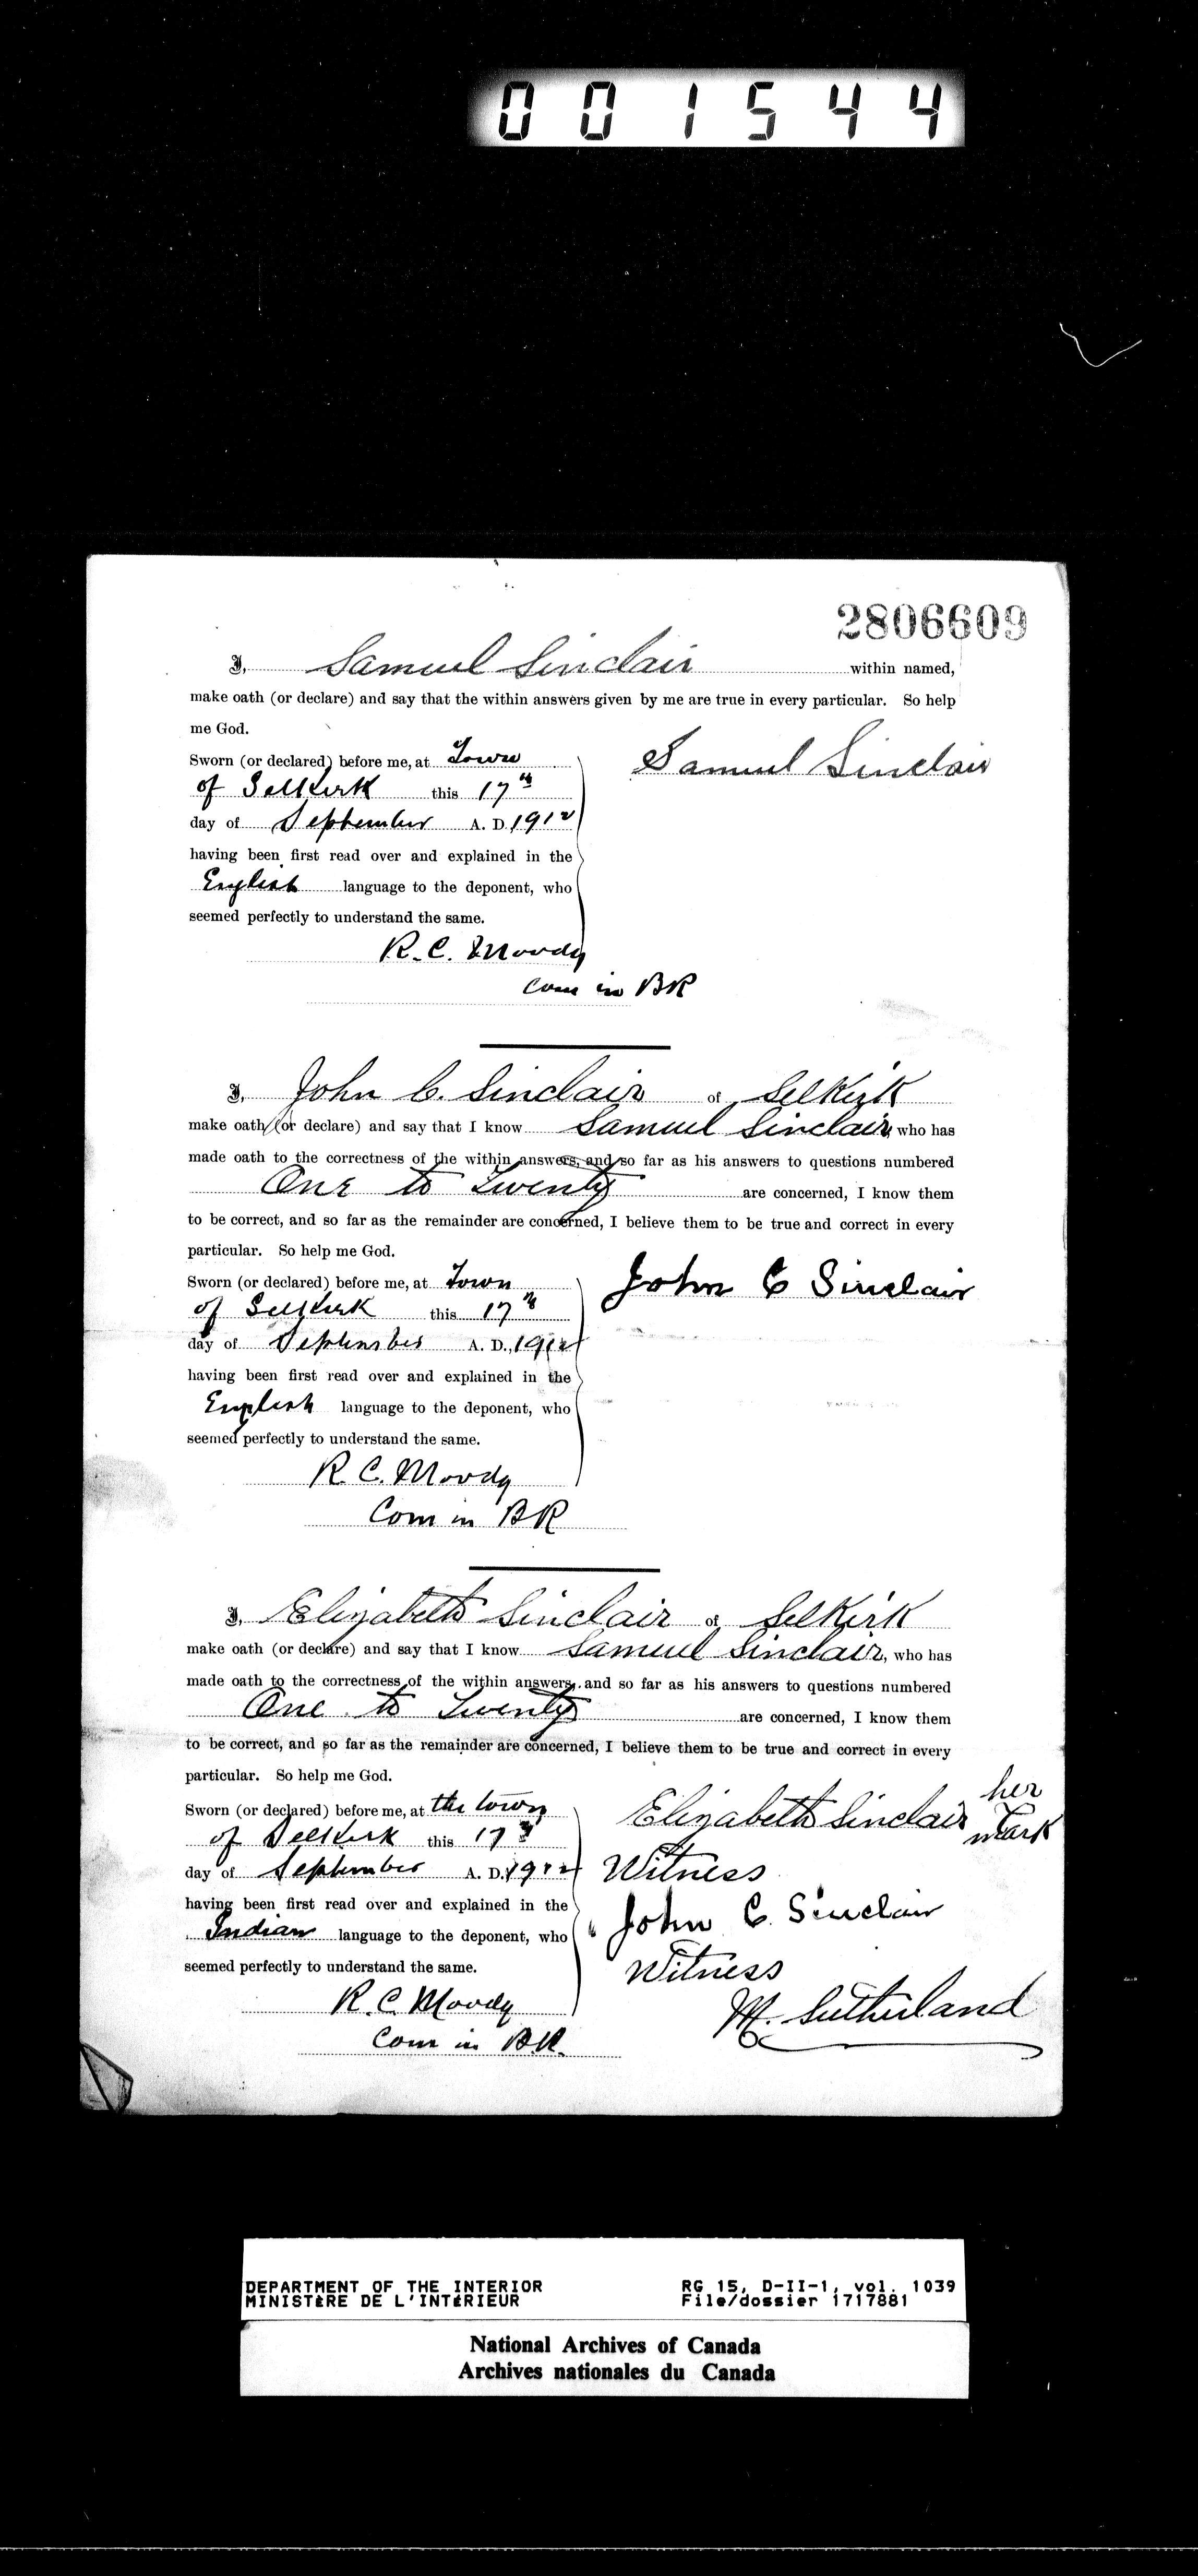 001544
2806609
I, Samuel Sinclair within named,
make oath (or declare) and say that the within answers given by me are true in every particular. So help
me God.
Sworn (or declared) before me, at Town
of Selkirk this 17th
day of September A. D. 1912
having been first read over and explained in the
English language to the deponent, who
seemed perfectly to understand the same.
Samuel Sinclair
R. C. Moody
Com in BR
I, John C. Sinclair of Selkirk
make oath (or declare) and say that I know Samuel Sinclair, who has
made oath to the correctness of the within answers, and so far as his answers to questions numbered
One to Twenty are concerned, I know them
to be correct, and so far as the remainder are concerned, I believe them to be true and correct in every
particular. So help me God.
Sworn (or declared) before me, at Town
of Selkirk this 17th
day of September A. D., 1912
having been first read over and explained in the
English language to the deponent, who
seemed perfectly to understand the same.
John C Sinclair
R. C. Moody
Com in BR
I, Elizabeth Sinclair of Selkirk
make oath (or declare) and say that I know Samuel Sinclair, who has
made oath to the correctness of the within answers, and so far as his answers to questions numbered
One to Twenty are concerned, I know them
to be correct, and so far as the remainder are concerned, I believe them to be true and correct in every
particular. So help me God.
Sworn (or declared) before me, at the town
of Selkirk this 17
day of September A. D. 1912
having been first read over and explained in the
Indian language to the deponent, who
seemed perfectly to understand the same.
R. C. Moody
Com in B.R.
her
Elizabeth Sinclair
mark
Witness
John C. Sinclair
Witness
M. Sutherland
DEPARTMENT OF THE INTERIOR RG 15, D-II-1, vol. 1039
MINISTÈRE DE L'INTÉRIEUR File/dossier 1717881
National Archives of Canada
Archives nationales du Canada